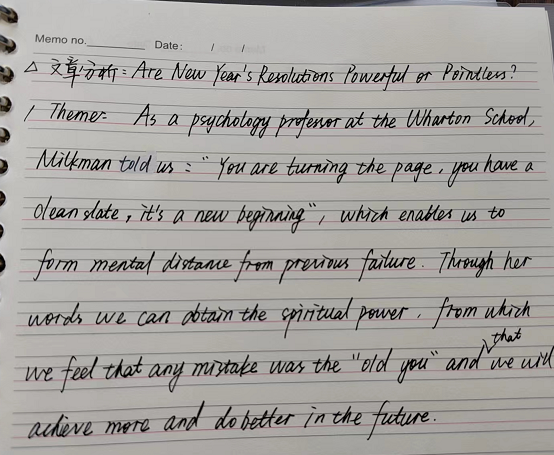 Memo no. Date: / /
△ 文章分析: Are New Year's Resolutions Powerful or Pointless?
1 Theme: As a psychology professor at the Wharton School,
Milkman told us: "You are turning the page, you have a
clean slate, it's a new beginning", which enables us to
form mental distance from previous failure. Through her
words we can obtain the spiritual power, from which
we feel that any mistake was the "old you" and that we will
achieve more and do better in the future.